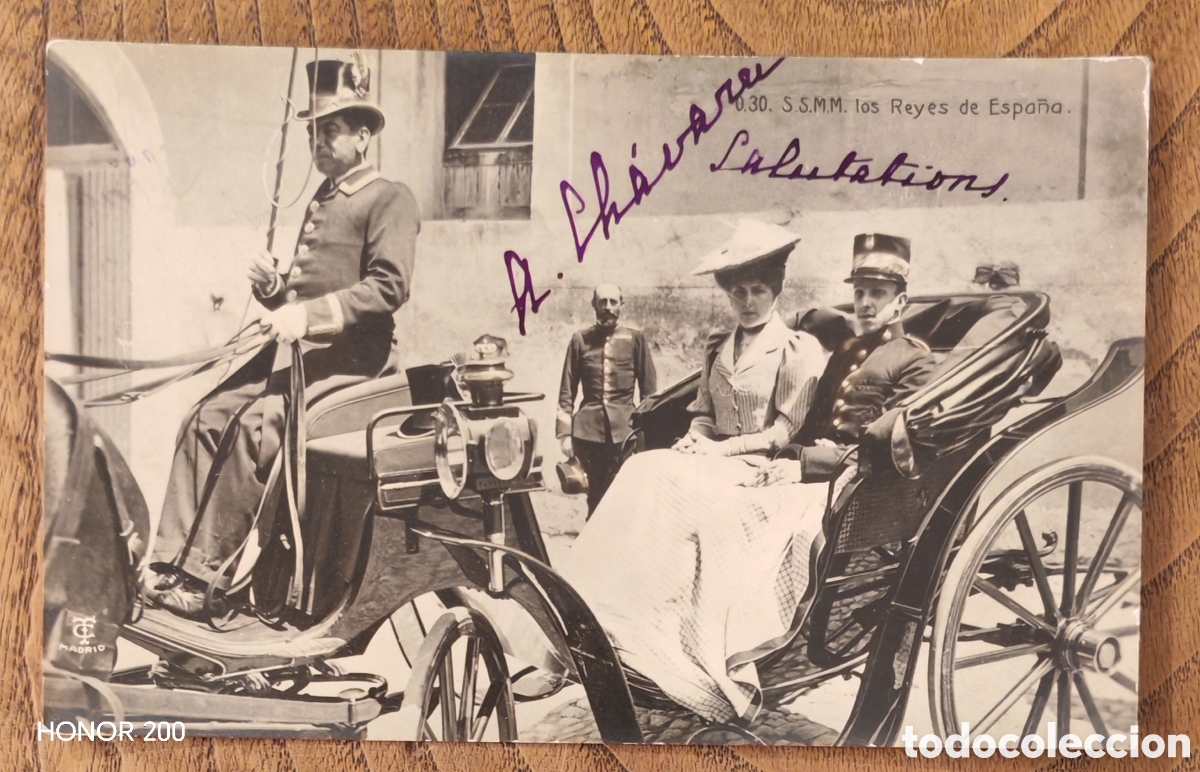 0.30. S.S.M.M. los Reyes de España.
A. Chávarri
Salutations.
MADRID
HONOR 200
todocoleccion